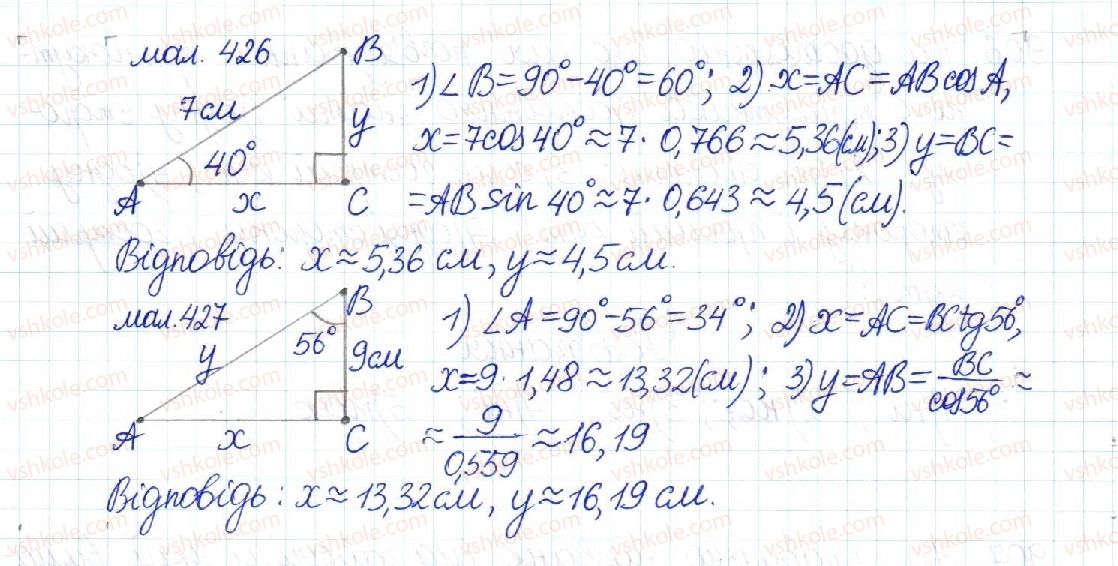 мал. 426
B
7см
y
40°
A
x
C
1) ∠B=90°-40°=60°; 2) x=AC=AB cos A,
x=7cos40°≈7·0,766≈5,36(см); 3) y=BC=
=AB sin 40°≈7·0,643≈4,5(см).
Відповідь: x≈5,36 см, y≈4,5см.
мал.427
B
56°
y
9см
A
x
C
1) ∠A=90°-56°=34°; 2) x=AC=BCtg56°,
x=9·1,48≈13,32(см); 3) y=AB=BC/cos56°≈
≈9/0,559≈16,19
Відповідь: x≈13,32см, y≈16,19см.
vshkole.com